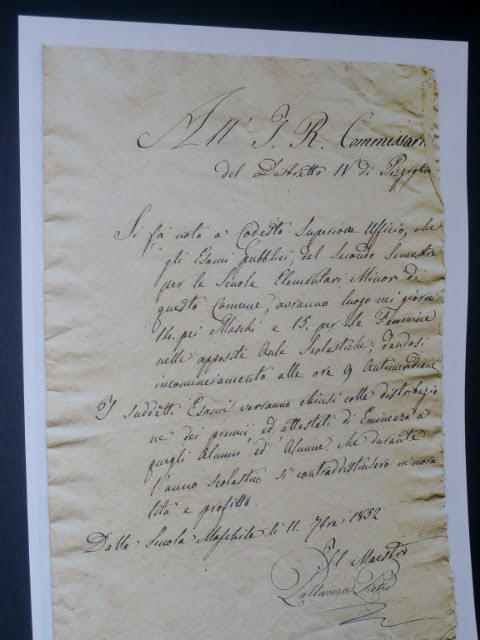 All' I. R. Commissari
del Distretto IV di Pizzighe
Si fà noto a Codesto Superiore Ufficio, che
gli Esami pubblici, del Secondo Semestre
per le Scuole Elementari Minori di
questo Comune, avranno luogo nei giorni
14. pei Maschi e 15. per le Femmine
nelle apposite Aule Scolastiche; dandosi
incominciamento alle ore 9 Antimeridiane
I suddetti Esami verranno chiusi colla distribuzio
ne dei premj, ed attestati di Eminenza a
quegli Alunni ed Alunne che durante
l'anno Scolastico si contraddistinsero in mora
lità e profitto.
Dalla Scuola Maschile li 11. 7bre 1852
Il Maestro
Pallavera Pietro